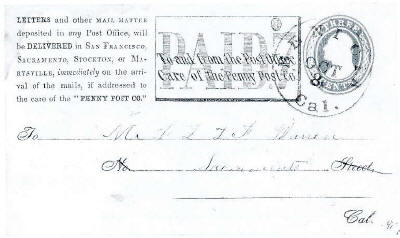 LETTERS and other MAIL MATTER
deposited in any Post Office, will
be DELIVERED in SAN FRANCISCO,
SACRAMENTO, STOCKTON, or MA-
RYSVILLE, immediately on the arri-
val of the mails, if addressed to
the care of the "PENNY POST CO."
PAID
To and from the Post Office
Care of the Penny Post Co.
THREE
CENTS
OCT
8
Cal.
To Mr. J L L F Warren
No Sacramento Street
Cal.